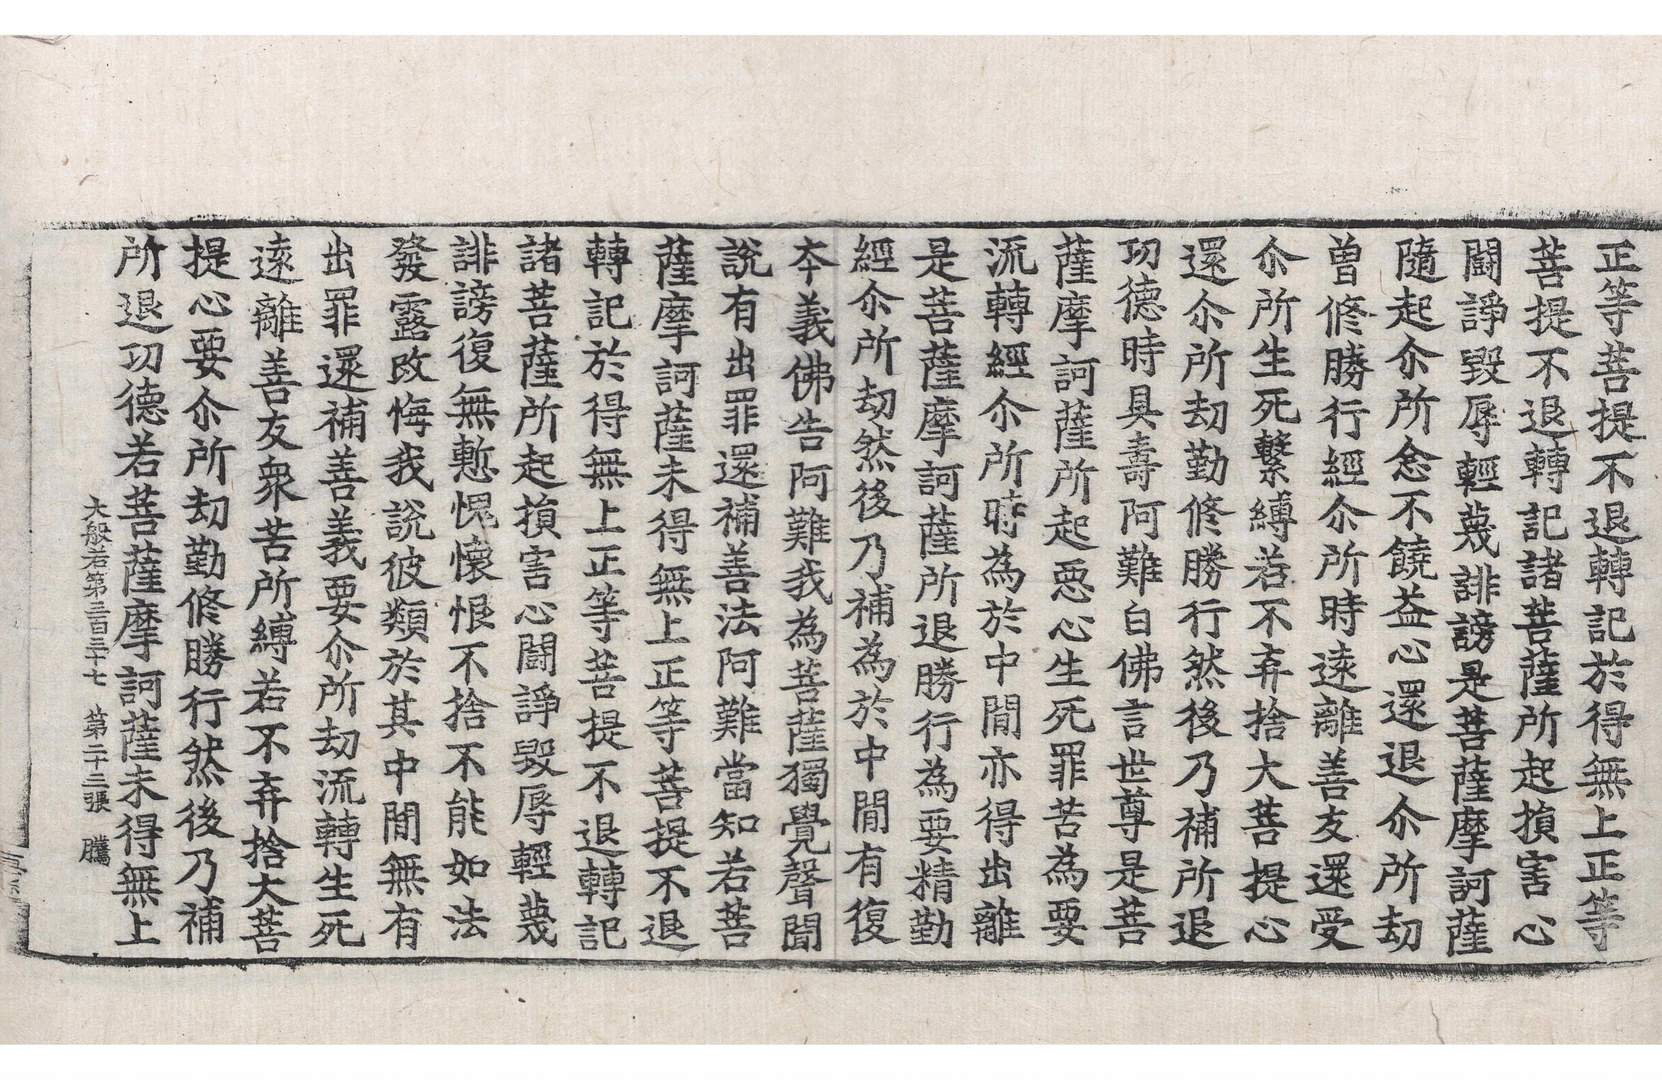 正等菩提不退轉記於得無上正等
菩提不退轉記諸菩薩所起損害心
鬪諍毀辱輕蔑誹謗是菩薩摩訶薩
隨起尒所念不饒益心還退尒所劫
曾修勝行經尒所時遠離善友還受
尒所生死繫縛若不弃捨大菩提心
還尒所劫勤修勝行然後乃補所退
功德時具壽阿難白佛言世尊是菩
薩摩訶薩所起惡心生死罪苦為要
流轉經尒所時為於中間亦得出離
是菩薩摩訶薩所退勝行為要精勤
經尒所劫然後乃補為於中間有復
本義佛告阿難我為菩薩獨覺聲聞
說有出罪還補善法阿難當知若菩
薩摩訶薩未得無上正等菩提不退
轉記於得無上正等菩提不退轉記
諸菩薩所起損害心鬪諍毀辱輕蔑
誹謗復無慙愧懷恨不捨不能如法
發露改悔我說彼類於其中間無有
出罪還補善義要尒所劫流轉生死
遠離善友衆苦所縛若不弃捨大菩
提心要尒所劫勤修勝行然後乃補
所退功德若菩薩摩訶薩未得無上
大般若第三百三十七 第二十三張 騰